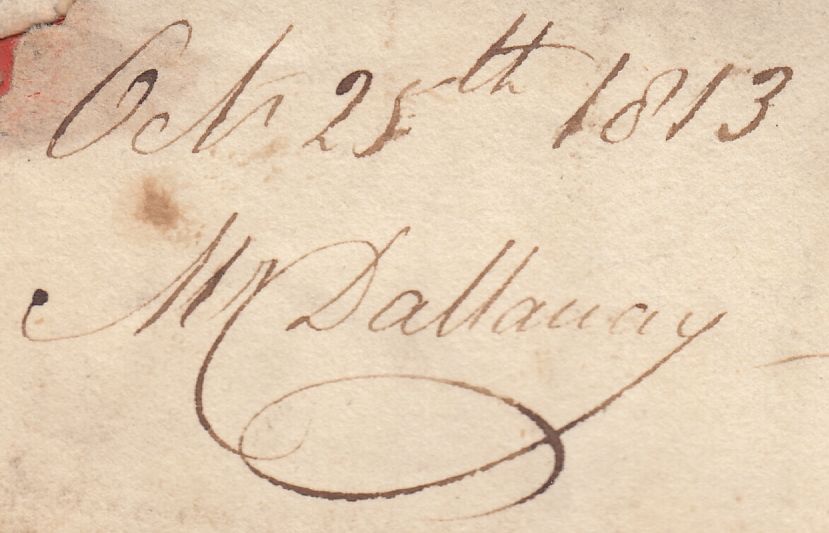 Octr 28th 1813
Mr Dallaway